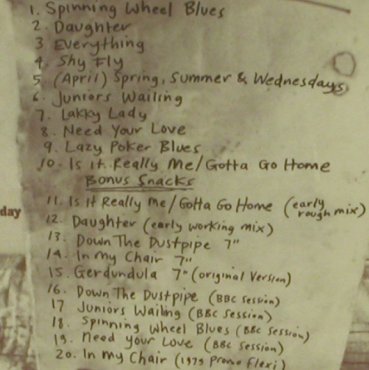 1. Spinning Wheel Blues
2. Daughter
3 Everything
4. Shy Fly
5 (April) Spring, Summer & Wednesdays
6. Juniors Wailing
7. Lakky Lady
8. Need Your Love
9. Lazy Poker Blues
10. Is it Really Me/Gotta Go Home
Bonus Snacks
11. Is it Really Me/Gotta Go Home (early rough mix)
day
12. Daughter (early working mix)
13. Down The Dustpipe 7"
14. In my Chair 7"
15. Gerdundula 7" (original Version)
16. Down The Dustpipe (BBC Session)
17 Juniors Wailing (BBC Session)
18. Spinning Wheel Blues (BBC Session)
19. Need your Love (BBC Session)
20. In my Chair (1979 Promo flexi)